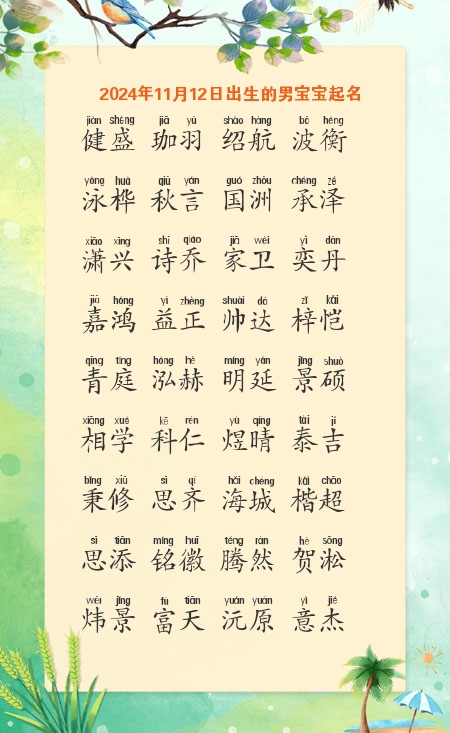 2024年11月12日出生的男宝宝起名
jiàn shèng jiā yǔ shào háng bō héng
健盛 珈羽 绍航 波衡
yǒng huà qiū yán guó zhōu chéng zé
泳桦 秋言 国洲 承泽
xiāo xīng shī qiáo jiā wèi yì dān
潇兴 诗乔 家卫 奕丹
jiā hóng yì zhèng shuài dá zǐ kǎi
嘉鸿 益正 帅达 梓恺
qīng tíng hóng hè míng yán jǐng shuò
青庭 泓赫 明延 景硕
xiāng xué kē rén yù qíng tài jí
相学 科仁 煜晴 泰吉
bǐng xiū sī qí hǎi chéng kǎi chāo
秉修 思齐 海城 楷超
sī tiān míng huī téng rán hè sōng
思添 铭徽 腾然 贺淞
wěi jǐng fù tiān yuán yuán yì jié
炜景 富天 沅原 意杰